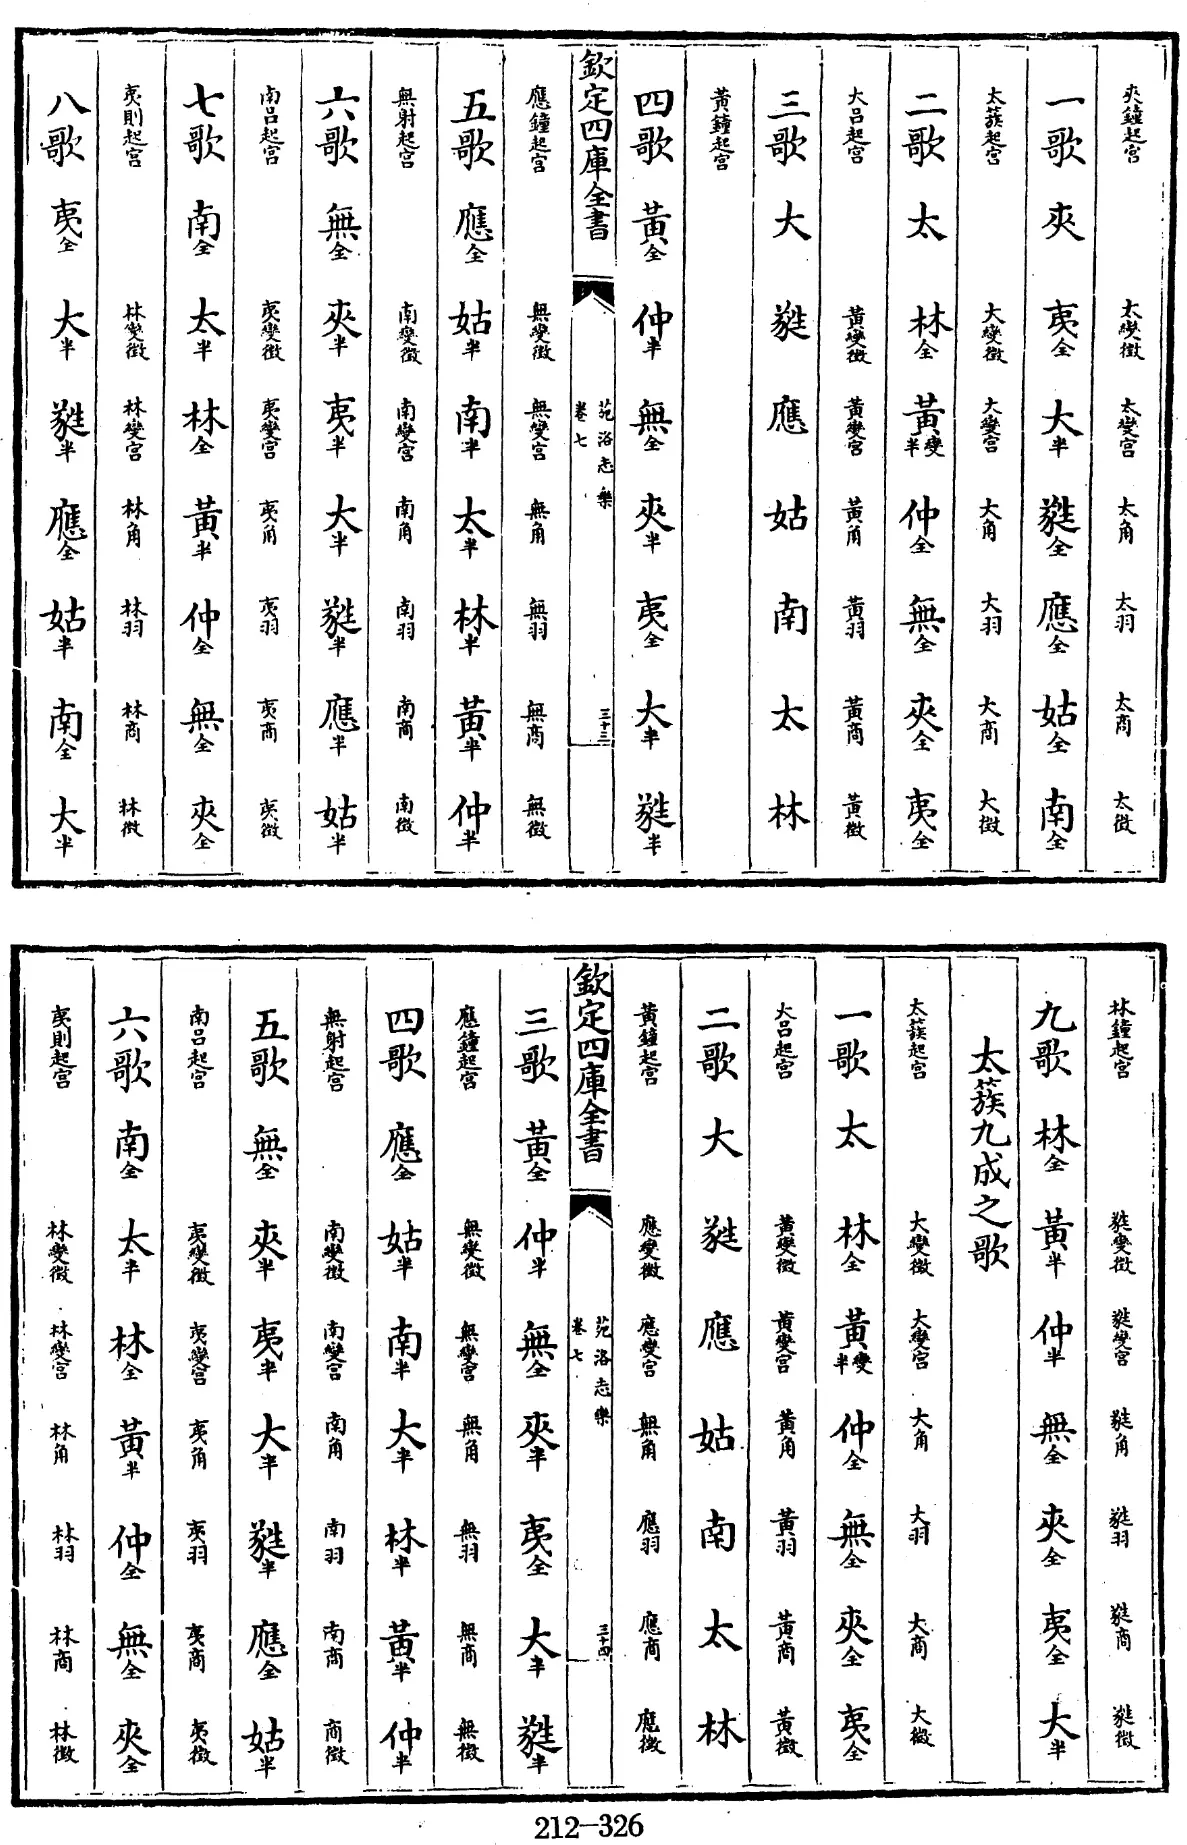 夾鐘起宮 太變徵 太變宮 太角 太羽 太商 太徵
一歌 夾 夷全 大半 蕤全 應全 姑全 南全
太蔟起宮 大變徵 大變宮 大角 大羽 大商 大徵
二歌 太 林全 黃變半 仲全 無全 夾全 夷全
大呂起宮 黃變徵 黃變宮 黃角 黃羽 黃商 黃徵
三歌 大 蕤 應 姑 南 太 林
黃鐘起宮
四歌 黃全 仲半 無全 夾半 夷全 大半 蕤半
欽定四庫全書 苑洛志樂 卷七 三十三
應鐘起宮 無變徵 無變宮 無角 無羽 無商 無徵
五歌 應全 姑半 南半 太半 林半 黃半 仲半
無射起宮 南變徵 南變宮 南角 南羽 南商 南徵
六歌 無全 夾半 夷半 大半 蕤半 應半 姑半
南呂起宮 夷變徵 夷變宮 夷角 夷羽 夷商 夷徵
七歌 南全 太半 林全 黃半 仲全 無全 夾全
夷則起宮 林變徵 林變宮 林角 林羽 林商 林徵
八歌 夷全 大半 蕤半 應全 姑半 南全 大半
林鐘起宮 蕤變徵 蕤變宮 蕤角 蕤羽 蕤商 蕤徵
九歌 林全 黃半 仲半 無全 夾全 夷全 大半
太蔟九成之歌
太蔟起宮 大變徵 大變宮 大角 大羽 大商 大徵
一歌 太 林全 黃變半 仲全 無全 夾全 夷全
大呂起宮 黃變徵 黃變宮 黃角 黃羽 黃商 黃徵
二歌 大 蕤 應 姑 南 太 林
黃鐘起宮 應變徵 應變宮 無角 應羽 應商 應徵
欽定四庫全書 苑洛志樂 卷七 三十四
三歌 黃全 仲半 無全 夾半 夷全 大半 蕤半
應鐘起宮 無變徵 無變宮 無角 無羽 無商 無徵
四歌 應全 姑半 南半 大半 林半 黃半 仲半
無射起宮 南變徵 南變宮 南角 南羽 南商 商徵
五歌 無全 夾半 夷半 大半 蕤半 應全 姑半
南呂起宮 夷變徵 夷變宮 夷角 夷羽 夷商 夷徵
六歌 南全 太半 林全 黃半 仲全 無全 夾全
夷則起宮 林變徵 林變宮 林角 林羽 林商 林徵
212-326